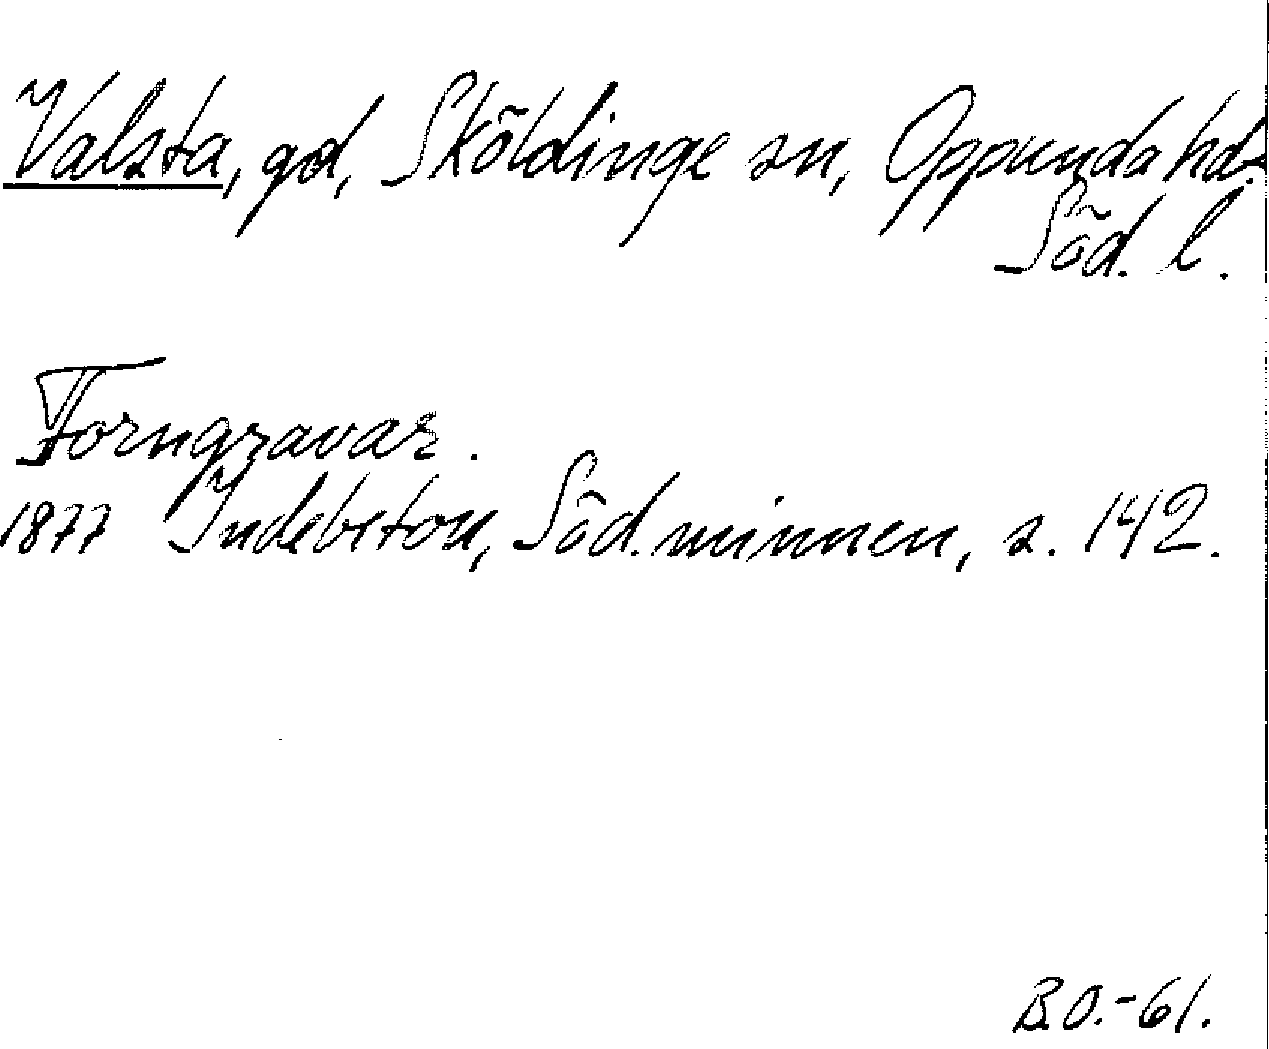 Valsta, gd, Sköldinge sn, Oppunda hd.
Söd. l.
Forngravar.
1877 Indebetou, Söd.minnen, s. 142.
B.O.-61.